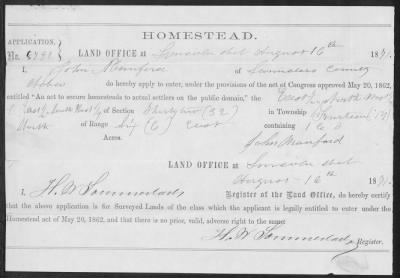 HOMESTEAD.
APPLICATION.
No. LAND OFFICE at Lincoln Neb August 16th 1871.
I, John Mumford of County
do hereby apply to enter, under the provisions of the act of Congress approved May 20, 1862,
entitled "An act to secure homesteads to actual settlers on the public domain," the East ½ North West
& East ½ South West ¼ of Section Thirty two (32) in Township
North of Range Six (6) East containing 160
Acres.
John Mumford
LAND OFFICE at Lincoln Neb
August 16th 1871.
I, H. W. Sommerlad, Register of the Land Office, do hereby certify
that the above application is for Surveyed Lands of the class which the applicant is legally entitled to enter under the
Homestead act of May 20, 1862, and that there is no prior, valid, adverse right to the same
H. W. Sommerlad, Register.